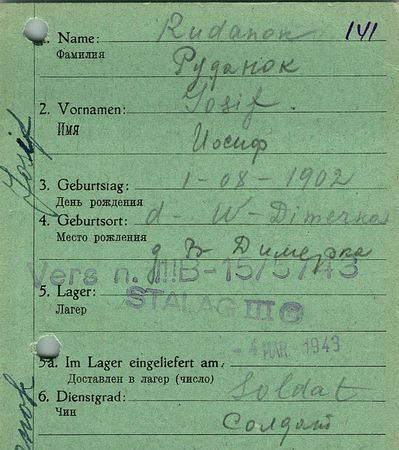 1. Name: Rudanok 141
Фамилия Руданок
2. Vornamen: Iosif.
Имя Иосиф
Josef
3. Geburtstag: 1-08-1902
День рождения
4. Geburtsort: d- W-Dimerka
Место рождения д В- Димерка
Vers n. IIIB-15/3/43
5. Lager: STALAG III C
Лагерь
- 4. MAR. 1943
5a. Im Lager eingeliefert am:
Доставлен в лагер (число)
6. Dienstgrad: Soldat
Чин Солдат